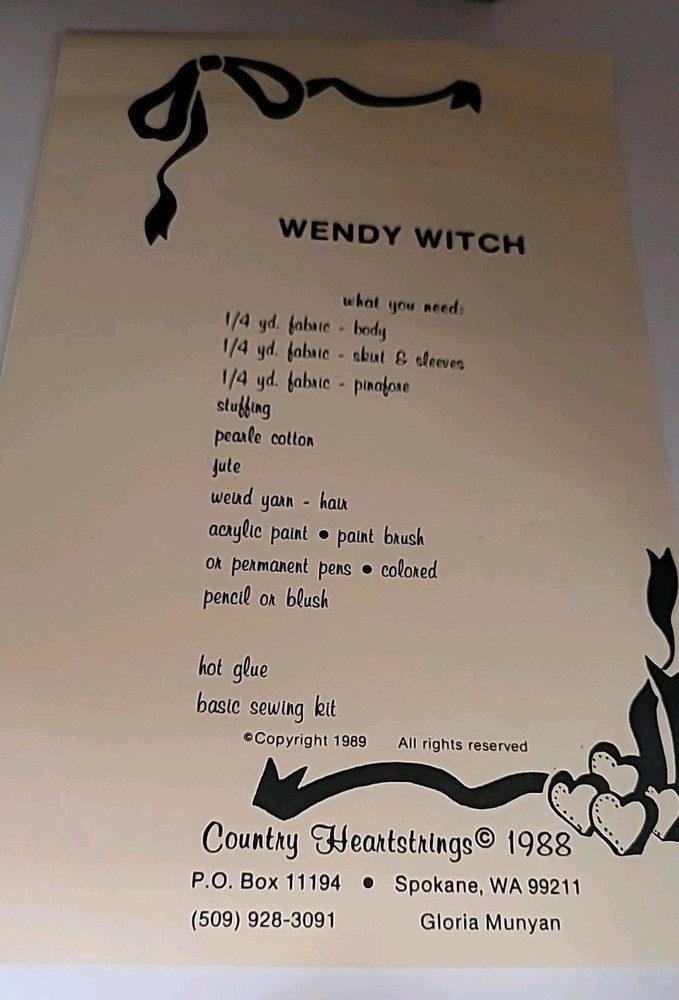 WENDY WITCH
what you need:
1/4 yd. fabric - body
1/4 yd. fabric - skirt & sleeves
1/4 yd. fabric - pinafore
stuffing
pearle cotton
jute
weird yarn - hair
acrylic paint • paint brush
or permanent pens • colored
pencil or blush
hot glue
basic sewing kit
©Copyright 1989 All rights reserved
Country Heartstrings© 1988
P.O. Box 11194 • Spokane, WA 99211
(509) 928-3091 Gloria Munyan